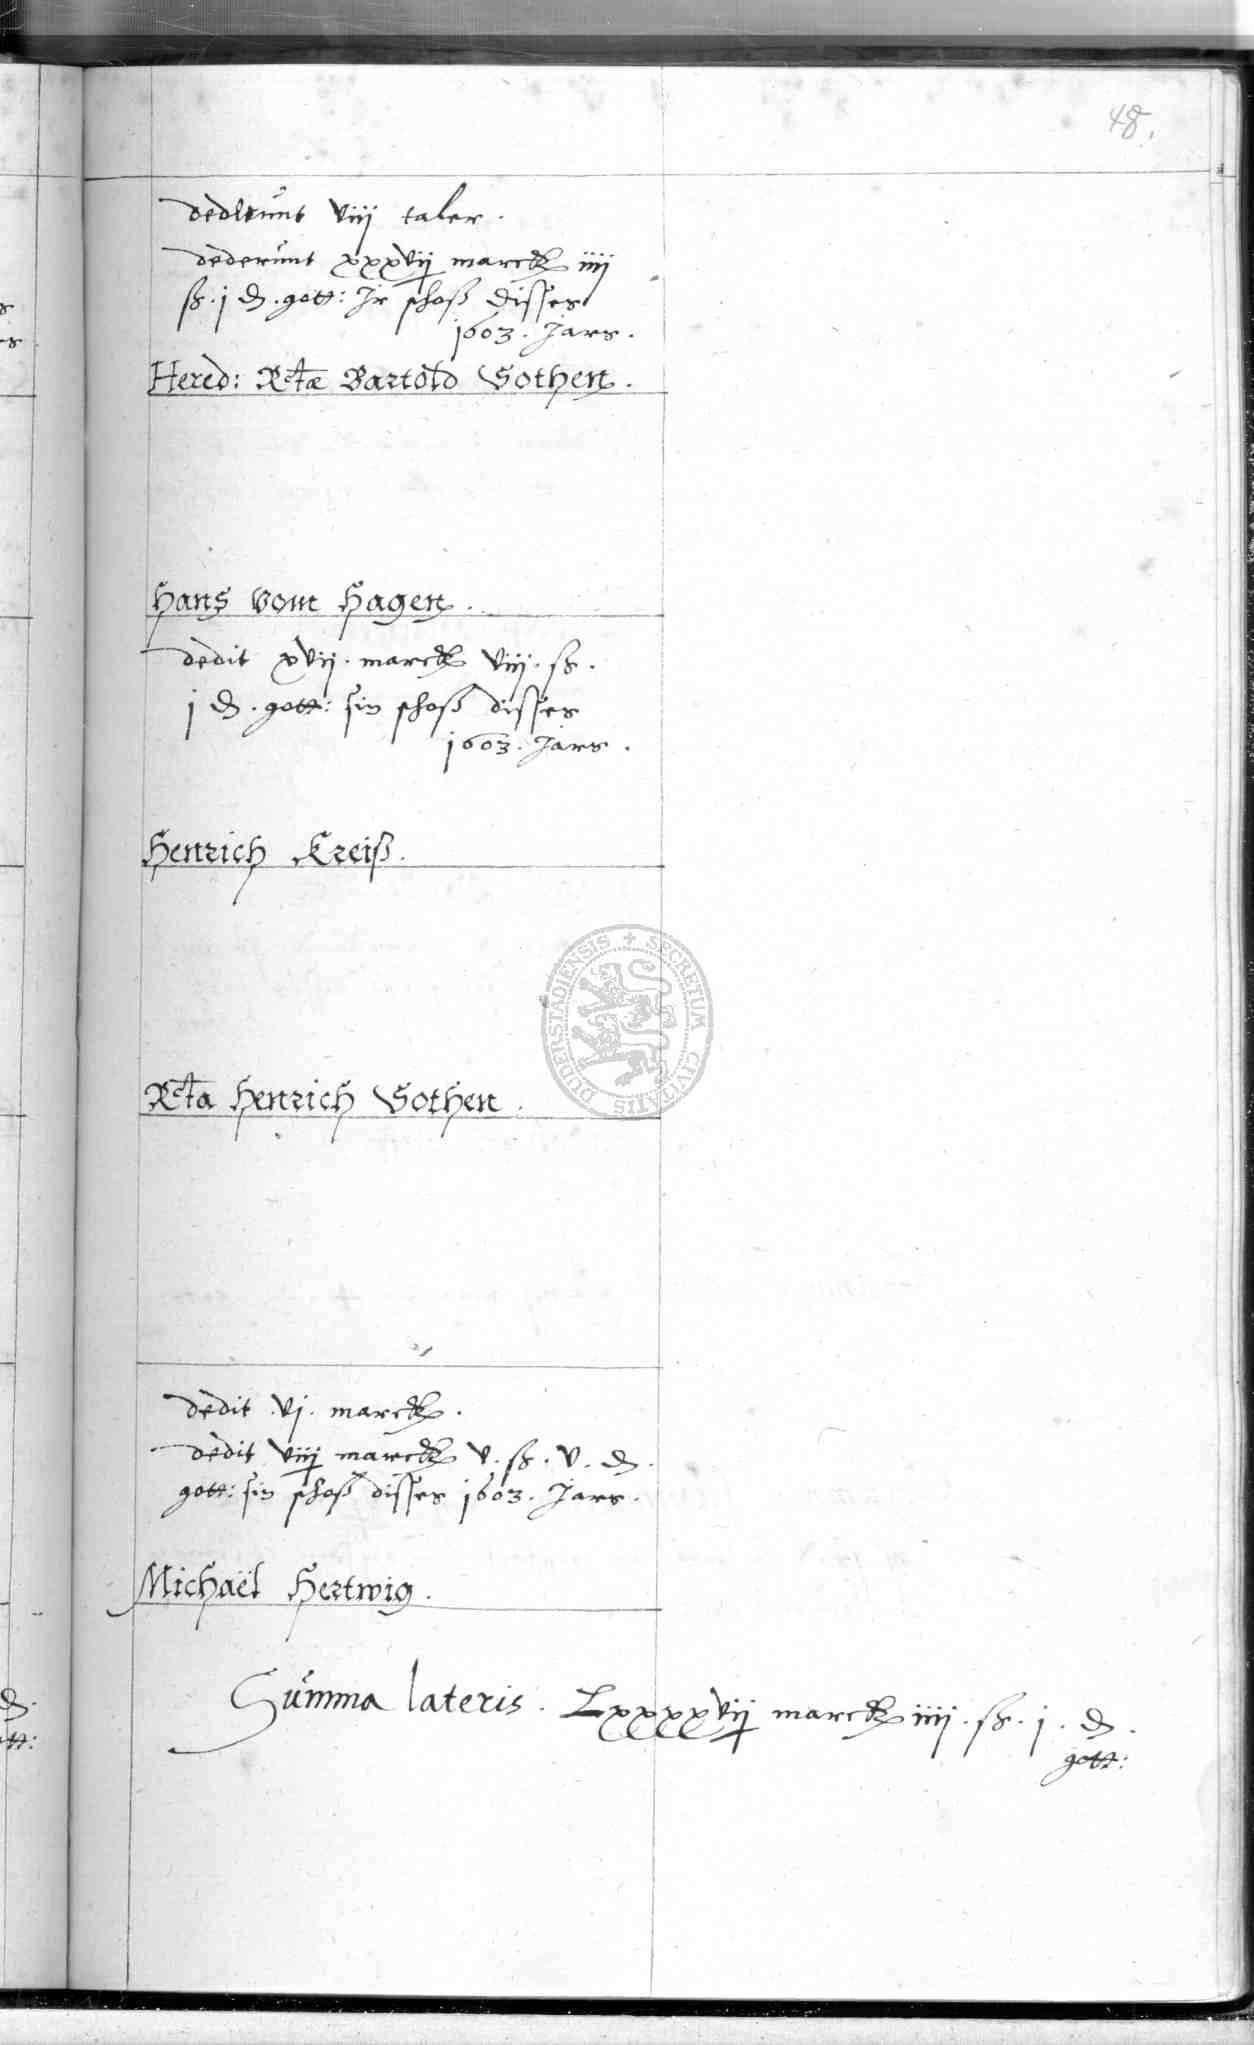 48.
dederunt viiij taler.
dederunt xxxvij marck iiij
ß. j ₰. gott: Jr schoß disses
1603. Jars.
Hered: Rctæ Bartold Gothen.
Hans vom Hagen.
dedit xvij. marck viiij. ß.
j ₰. gott: sin schoß disses
1603. Jars.
Henrich Kreiß.
Rcta Henrich Gothen.
dedit vj. marck.
dedit viiij marck v. ß. v. ₰.
gott: sin schoß disses 1603. Jars.
Michaël Hertwig.
Summa lateris. Lxxxxvij marck iiij. ß. j. ₰.
gott:
DUDERSTADIENSIS + SECRETUM CIVITATIS